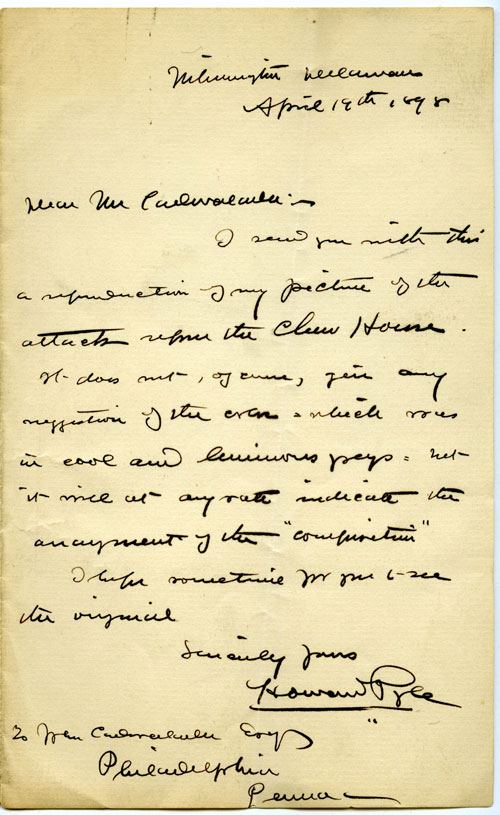 Wilmington Delaware
April 19th 1898
Dear Mr Cadwalader:—
I send you with this
a reproduction of my picture of the
attack upon the Chew House.
It does not, of course, give any
suggestion of the color - which was
in cool and luminous greys - but
it will at any rate indicate the
arrangement of the "composition"
I hope sometime for you to see
the original
Sincerely yours
Howard Pyle
To Cadwalader Esq
Philadelphia
Penna—